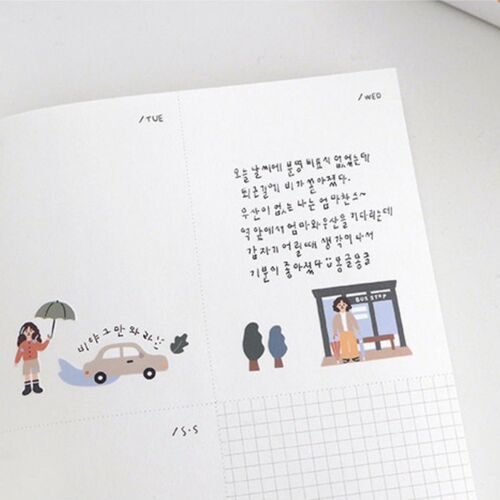 /TUE
/WED
오늘 날씨에 분명 비표시 없었는데
퇴근길에 비가 쏟아졌다.
우산이 없는 나는 엄마찬스~
역 앞에서 엄마와 우산을 기다리는데
갑자기 어릴때 생각이 나서
기분이 좋아졌다 :) 몽글몽글
비야 그만 와라!!
BUS STOP
/S.S